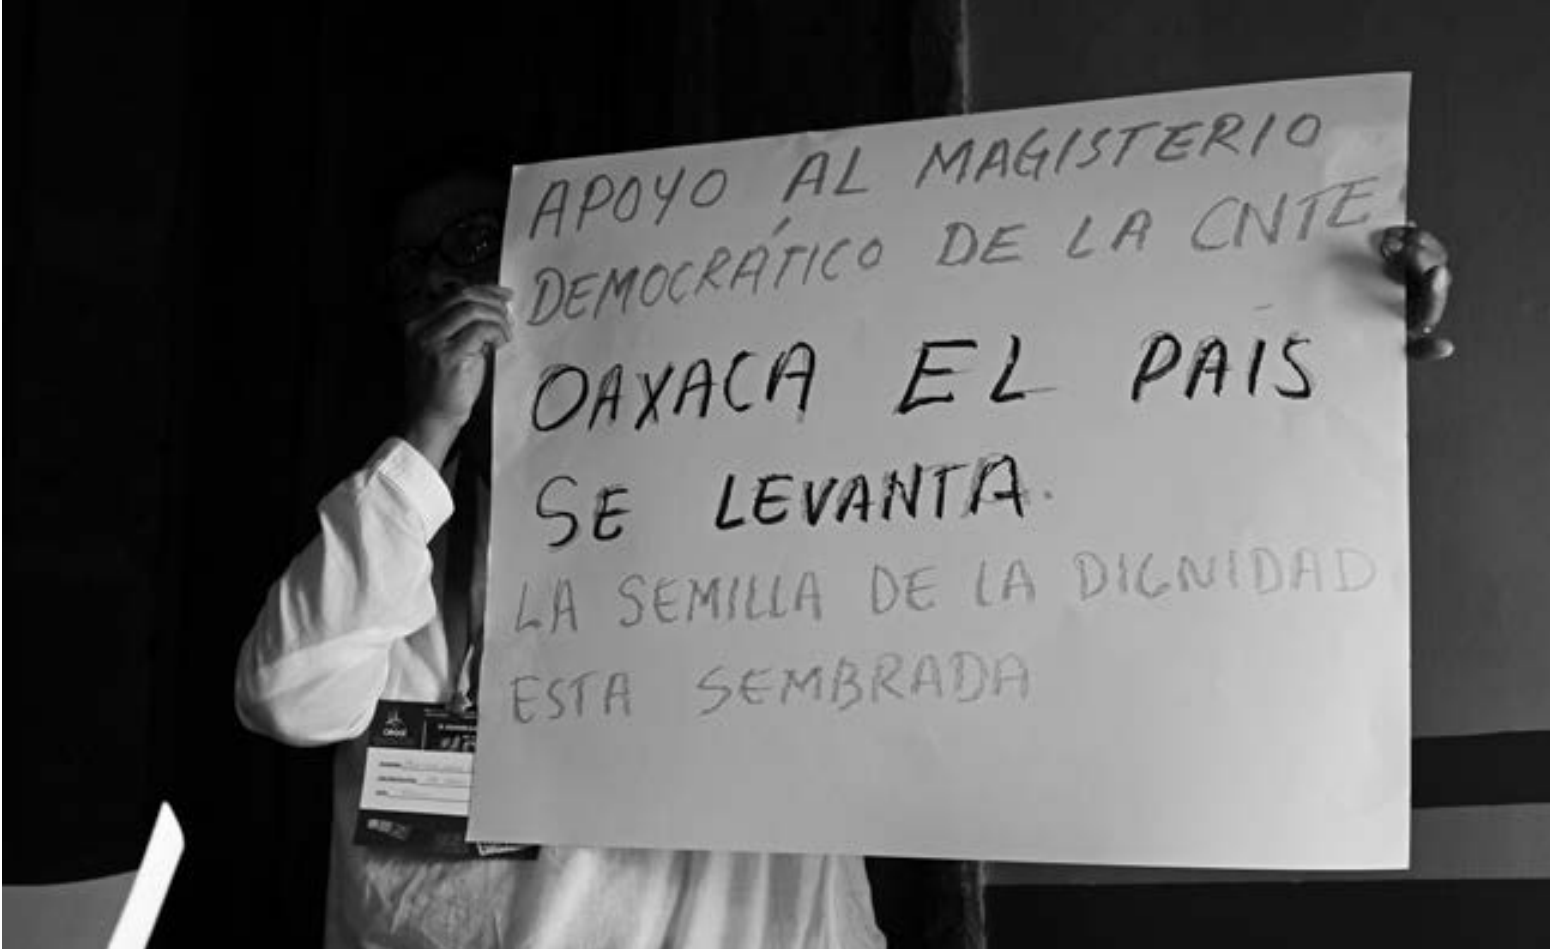 APOYO AL MAGISTERIO
DEMOCRÁTICO DE LA CNTE
OAXACA EL PAIS
SE LEVANTA.
LA SEMILLA DE LA DIGNIDAD
ESTA SEMBRADA